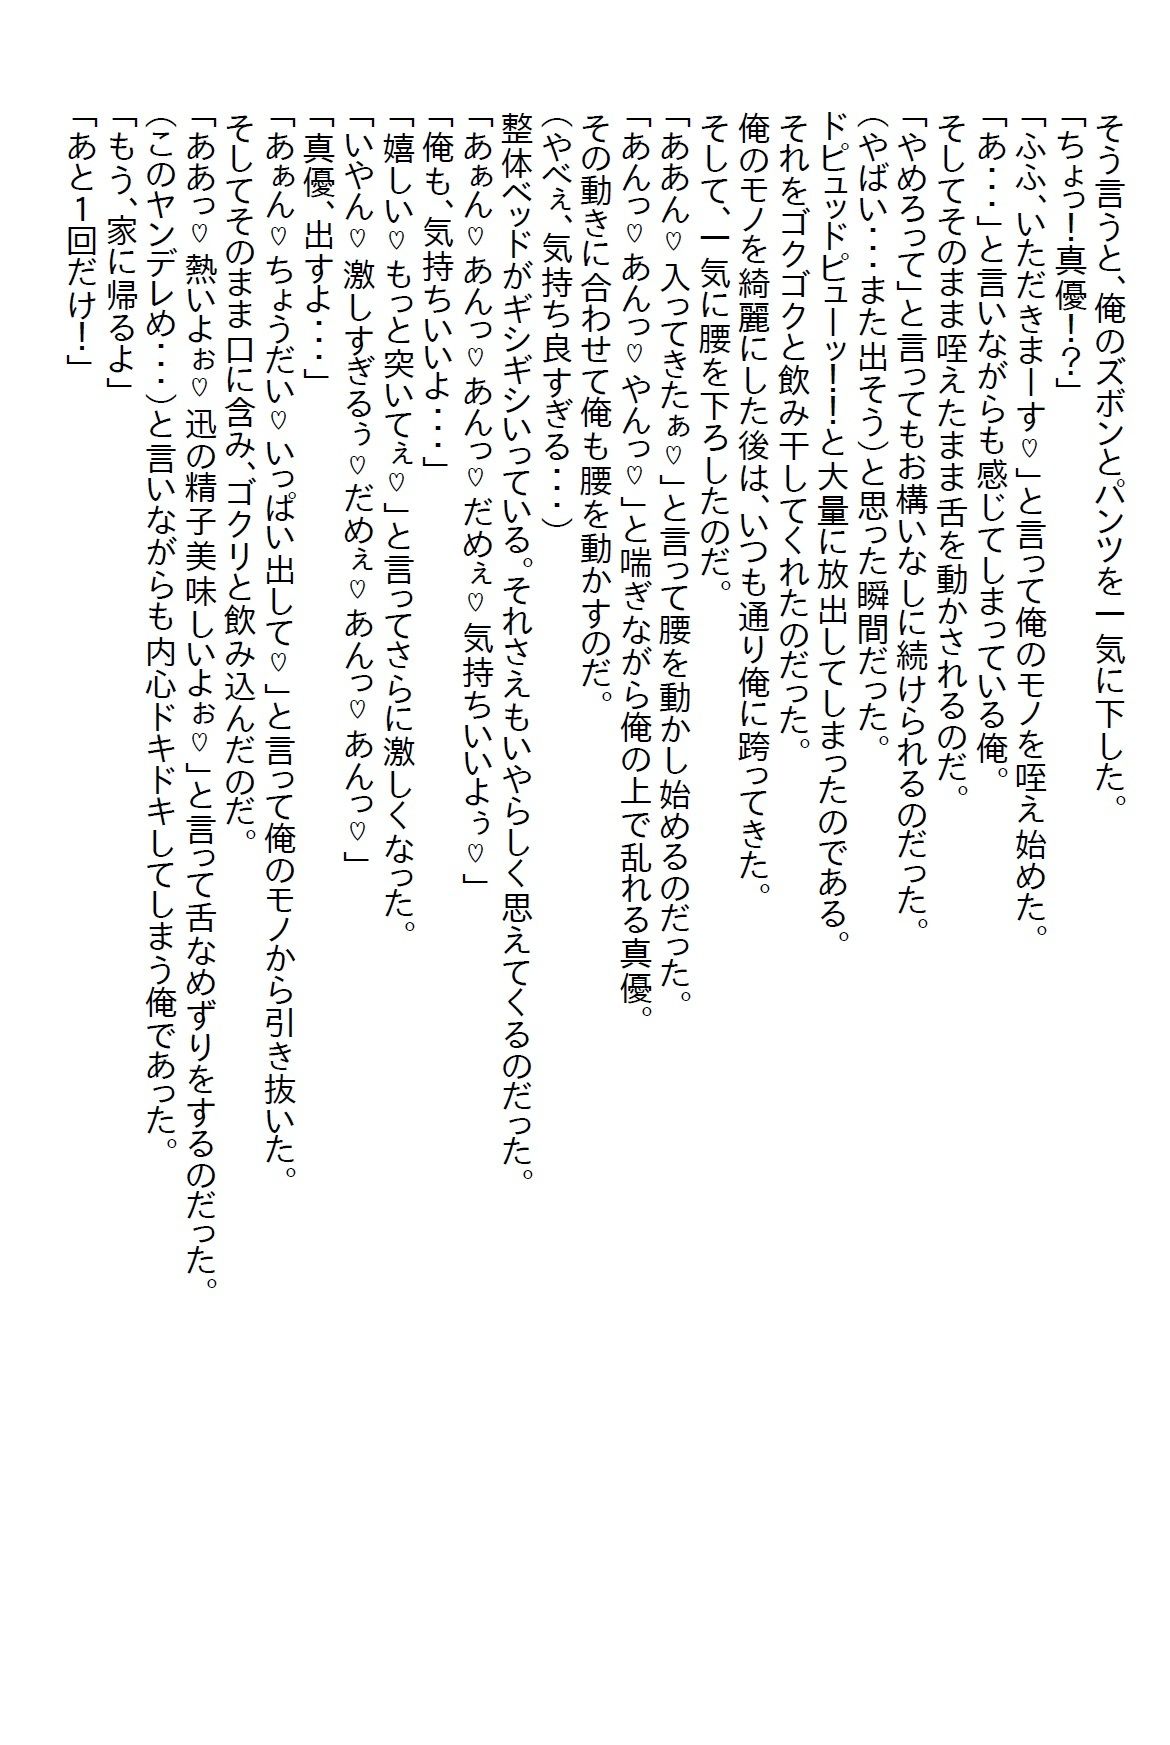 そう言うと、俺のズボンとパンツを一気に下した。
「ちょっ！真優！？」
「ふふ、いただきまーす♡」と言って俺のモノを咥え始めた。
「あ・・・」と言いながらも感じてしまっている俺。
そしてそのまま咥えたまま舌を動かされるのだ。
「やめろって」と言ってもお構いなしに続けられるのだった。
（やばい・・・また出そう）と思った瞬間だった。
ドピュッドピューッ！！！と大量に放出してしまったのである。
それをゴクゴクと飲み干してくれたのだった。
俺のモノを綺麗にした後は、いつも通り俺に跨ってきた。
そして、一気に腰を下ろしたのだ。
「ああん♡入ってきたぁ♡」と言って腰を動かし始めるのだった。
「あんっ♡あんっ♡やんっ♡」と喘ぎながら俺の上で乱れる真優。
その動きに合わせて俺も腰を動かすのだ。
（やべぇ、気持ち良すぎる・・・）
整体ベッドがギシギシいっている。それさえもいやらしく思えてくるのだった。
「あぁん♡あんっ♡あんっ♡だめぇ♡気持ちいいよぅ♡」
「俺も、気持ちいいよ・・・」
「嬉しい♡もっと突いてぇ♡」と言ってさらに激しくなった。
「いやん♡激しすぎるぅ♡だめぇ♡あんっ♡あんっ♡」
「真優、出すよ・・・」
「あぁん♡ちょうだい♡いっぱい出して♡」と言って俺のモノから引き抜いた。
そしてそのまま口に含み、ゴクリと飲み込んだのだ。
「ああっ♡熱いよぉ♡迅の精子美味しいよぉ♡」と言って舌なめずりをするのだった。
（このヤンデレめ・・・）と言いながらも内心ドキドキしてしまう俺であった。
「もう、家に帰るよ」
「あと１回だけ！」